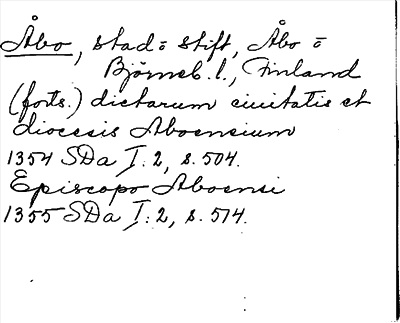 Åbo, stad= o. stift, Åbo= o.
Björneb. l., Finland
(forts.) dictarum ciuitatis et
diocesis Aboensium
1354 SDa I: 2, s. 504.
Episcopo Aboensi
1355 SDa I: 2, s. 514.